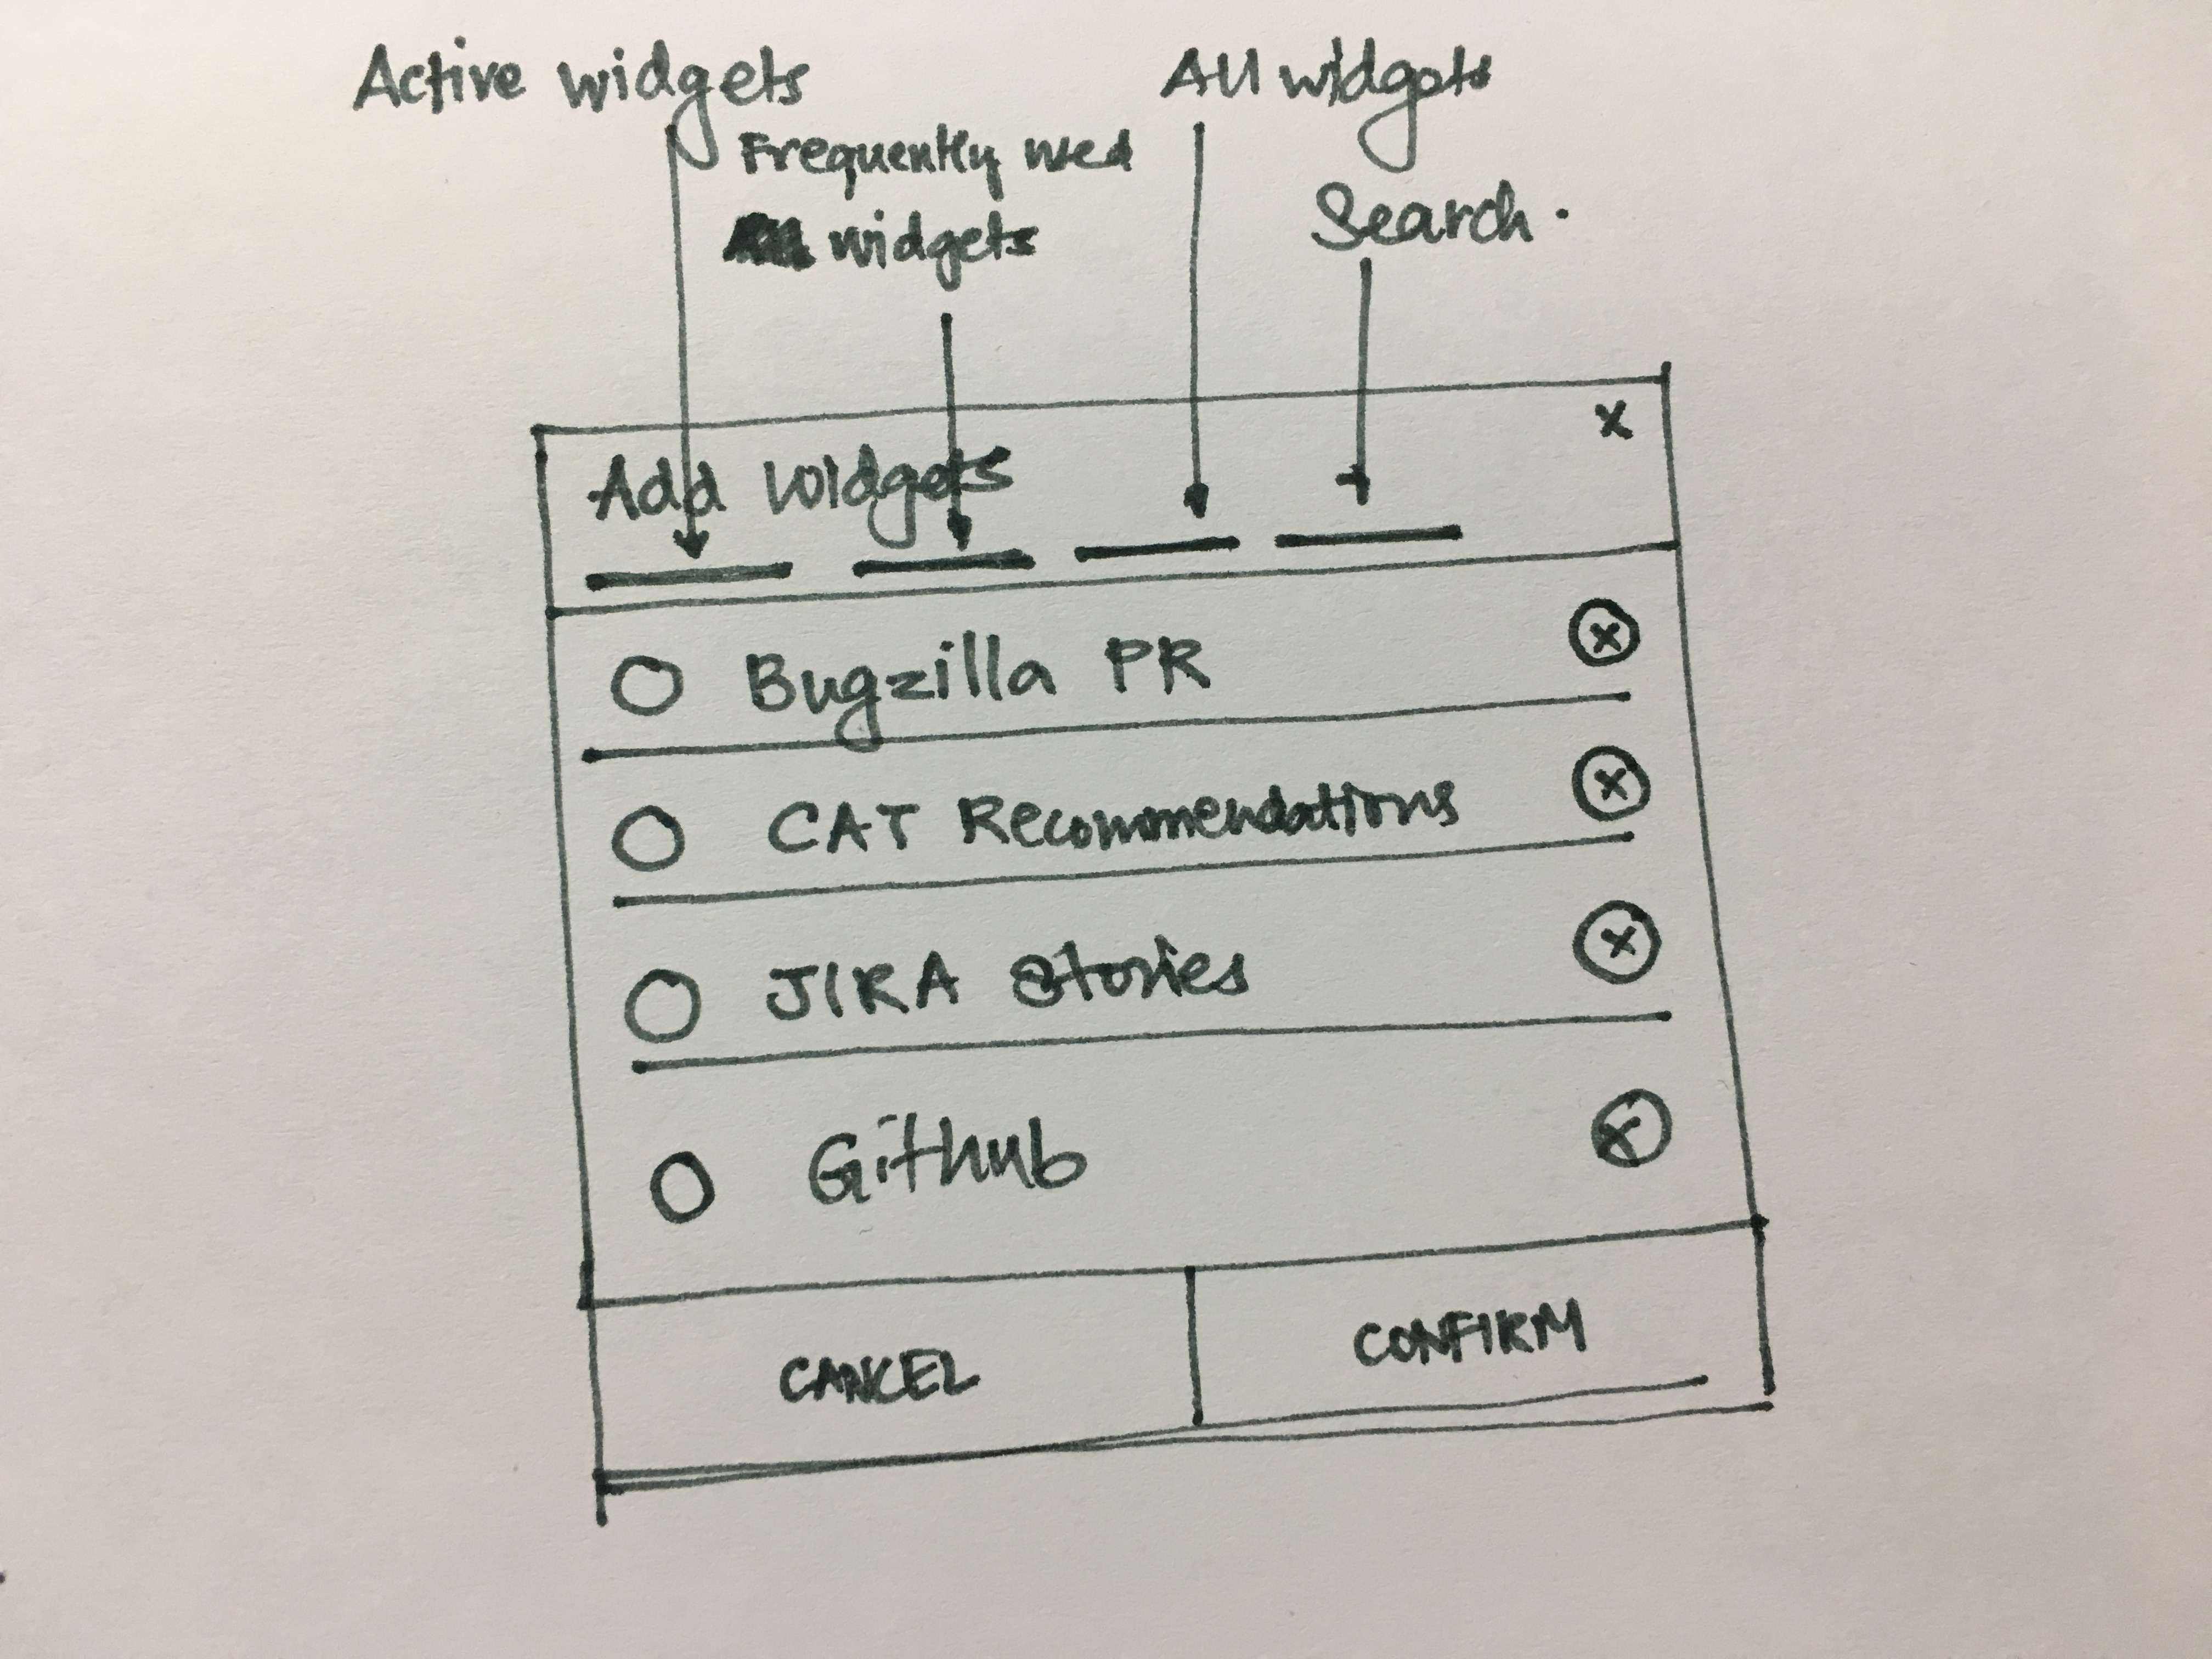 Active widgets
All widgets
Frequently used
widgets
Search.
Add Widgets
x
Bugzilla PR
x
CAT Recommendations
x
JIRA Stories
x
Github
x
CANCEL
CONFIRM